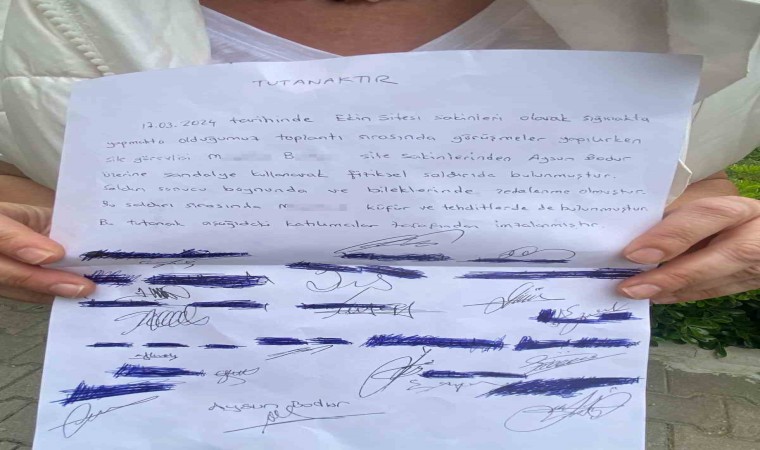 TUTANAKTIR
17.03.2024 tarihinde Ekin Sitesi sakinleri olarak sığınakta
yapmakta olduğumuz toplantı sırasında görüşmeler yapılırken
site görevlisi M B site sakinlerinden Aysun Bodur
üzerine sandalye kullanarak fiziksel saldırıda bulunmuştur.
Saldırı sonucu boynunda ve bileklerinde zedelenme olmuştur.
Bu saldırı sırasında M küfür ve tehditlerde de bulunmuştur.
Bu tutanak aşağıdaki katılımcılar tarafından imzalanmıştır.
Aysun Bodur